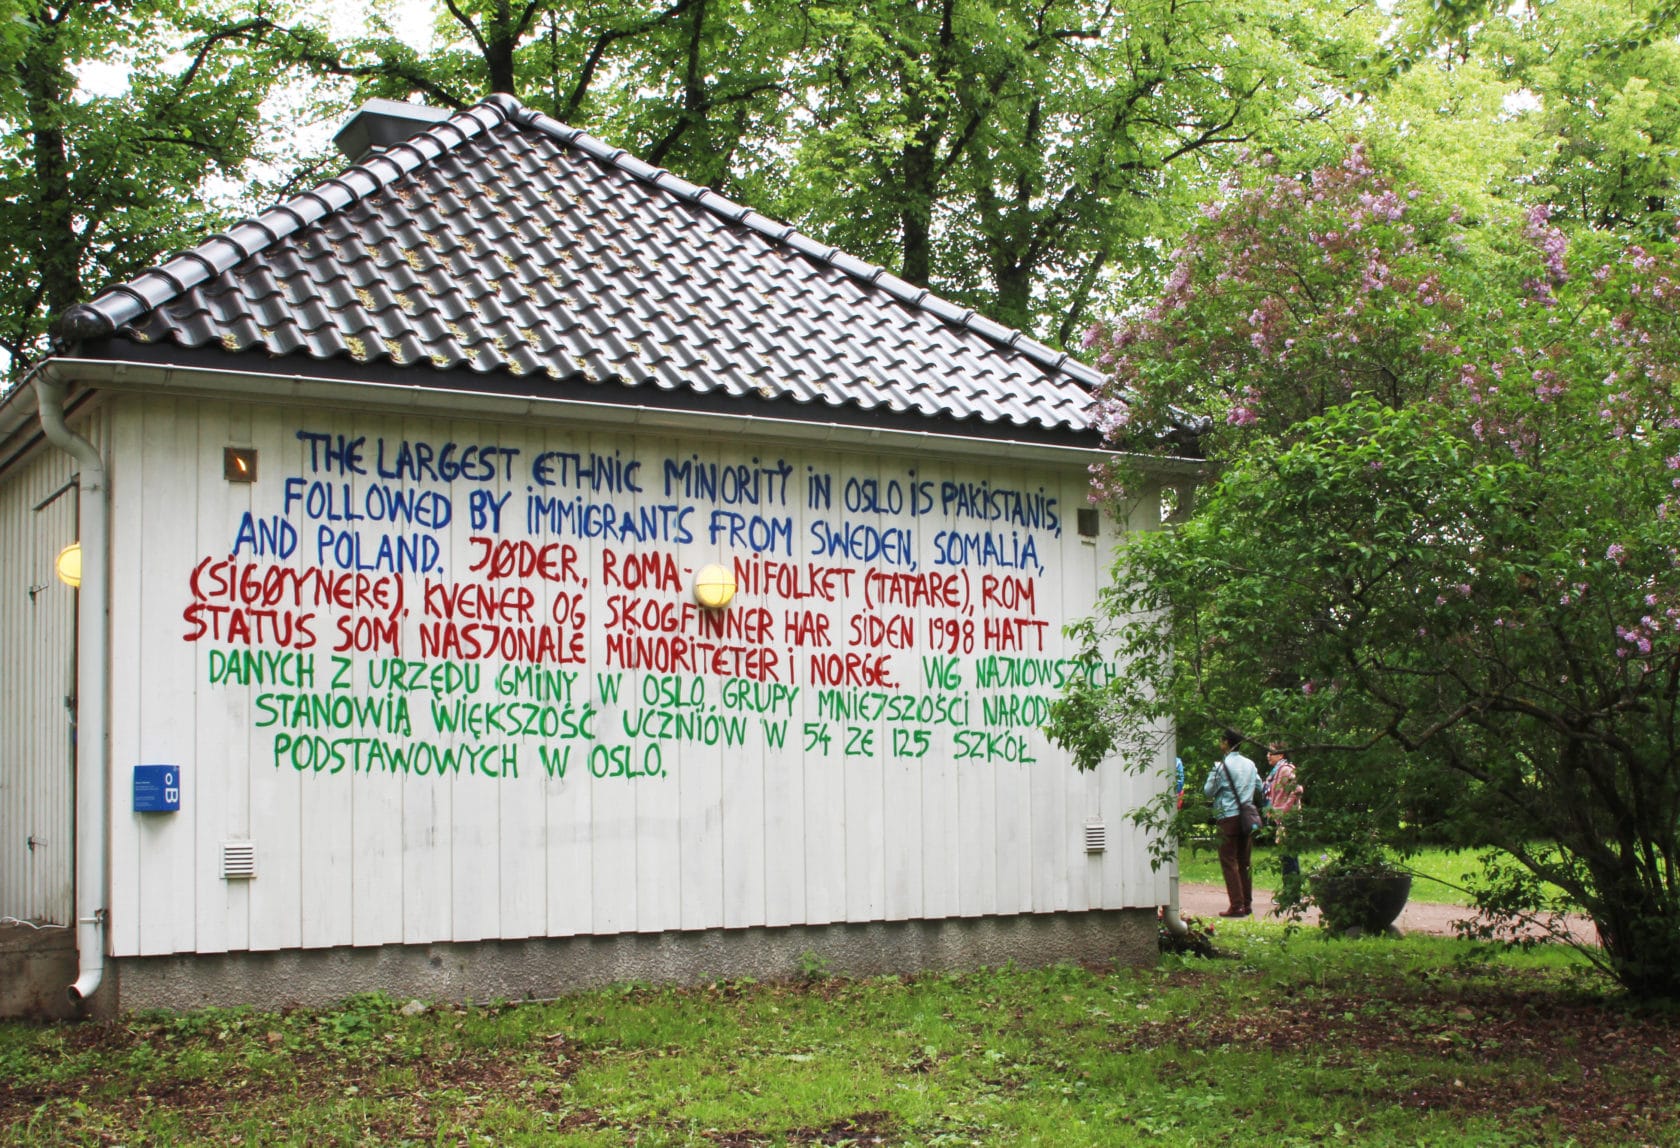 THE LARGEST ETHNIC MINORITY IN OSLO IS PAKISTANIS,
FOLLOWED BY IMMIGRANTS FROM SWEDEN, SOMALIA,
AND POLAND. JØDER, ROMA-NIFOLKET (TATARE), ROM
(SIGØYNERE), KVENER OG SKOGFINNER HAR SIDEN 1998 HATT
STATUS SOM NASJONALE MINORITETER I NORGE. WG NAJNOWSZYCH
DANYCH Z URZĘDU GMINY W OSLO, GRUPY MNIEJSZOŚCI
STANOWIĄ WIĘKSZOŚĆ UCZNIÓW W 54 ZE 125 SZKÓŁ
PODSTAWOWYCH W OSLO.
OB